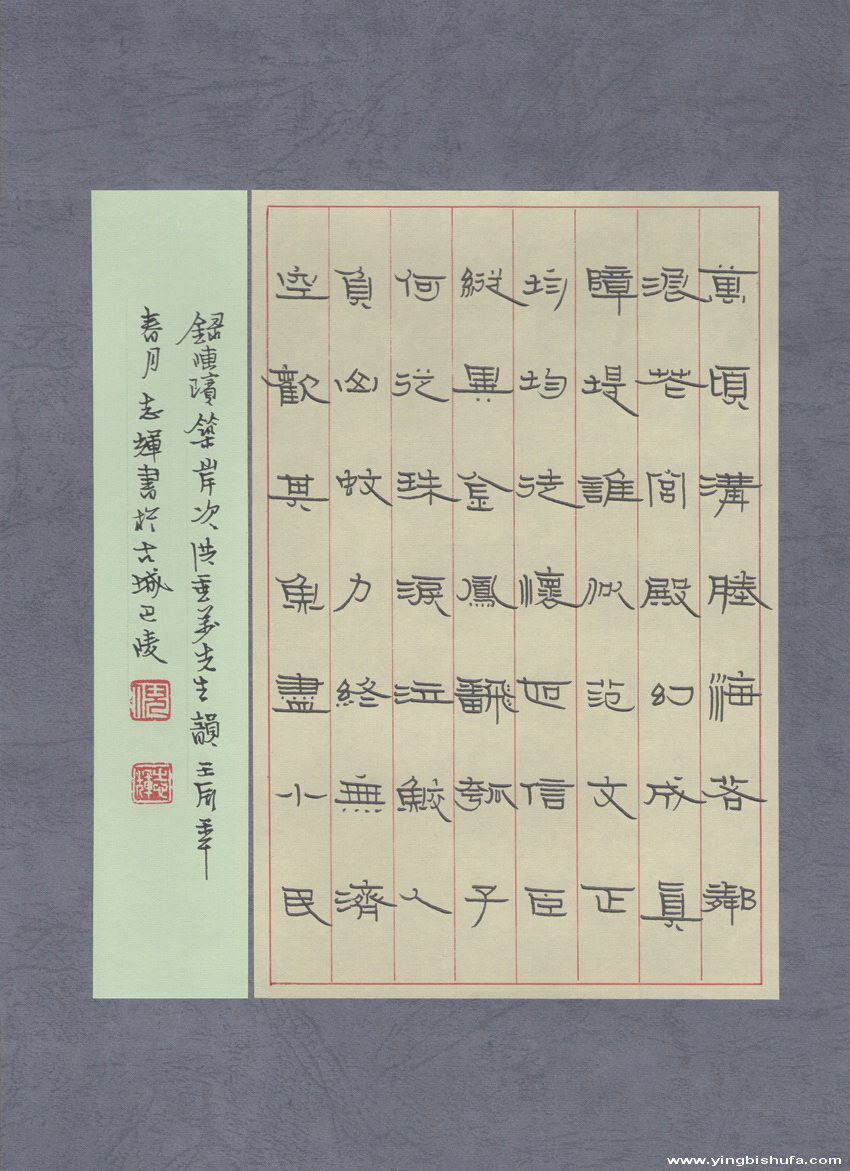 萬頃溝塍海若鄰
浪花宮殿幻成真
障堤誰似范文正
均均徒懷叵信臣
縱異金鳳翻瓠子
何從珠淚泣鮫人
負山蚊力終無濟
空歡其魚盡小民
錄陳瓚築岸次洪重先生韻壬辰年
春月志輝書於古城巴陵
志輝
www.yingbishufa.com